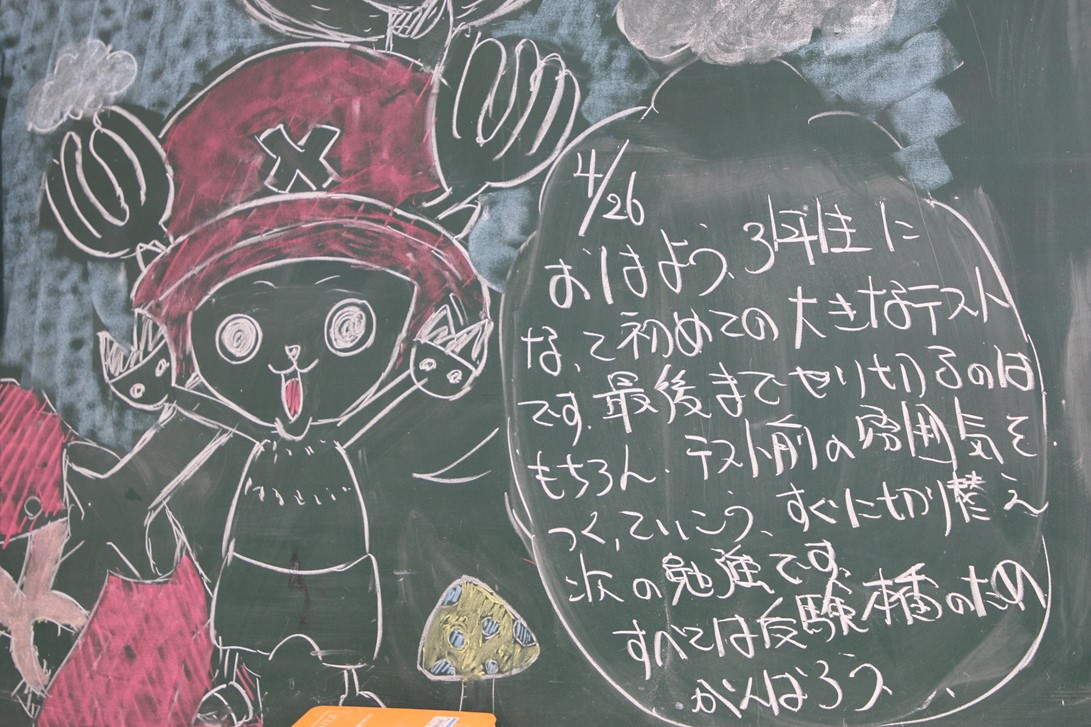 4/26
おはよう。3年生に
なって初めての大きなテスト
です。最後までやり切るのは
もちろん、テスト前の雰囲気を
つくっていこう。すぐに切り替え
次の勉強です。
すべては受験本番のため
がんばろう